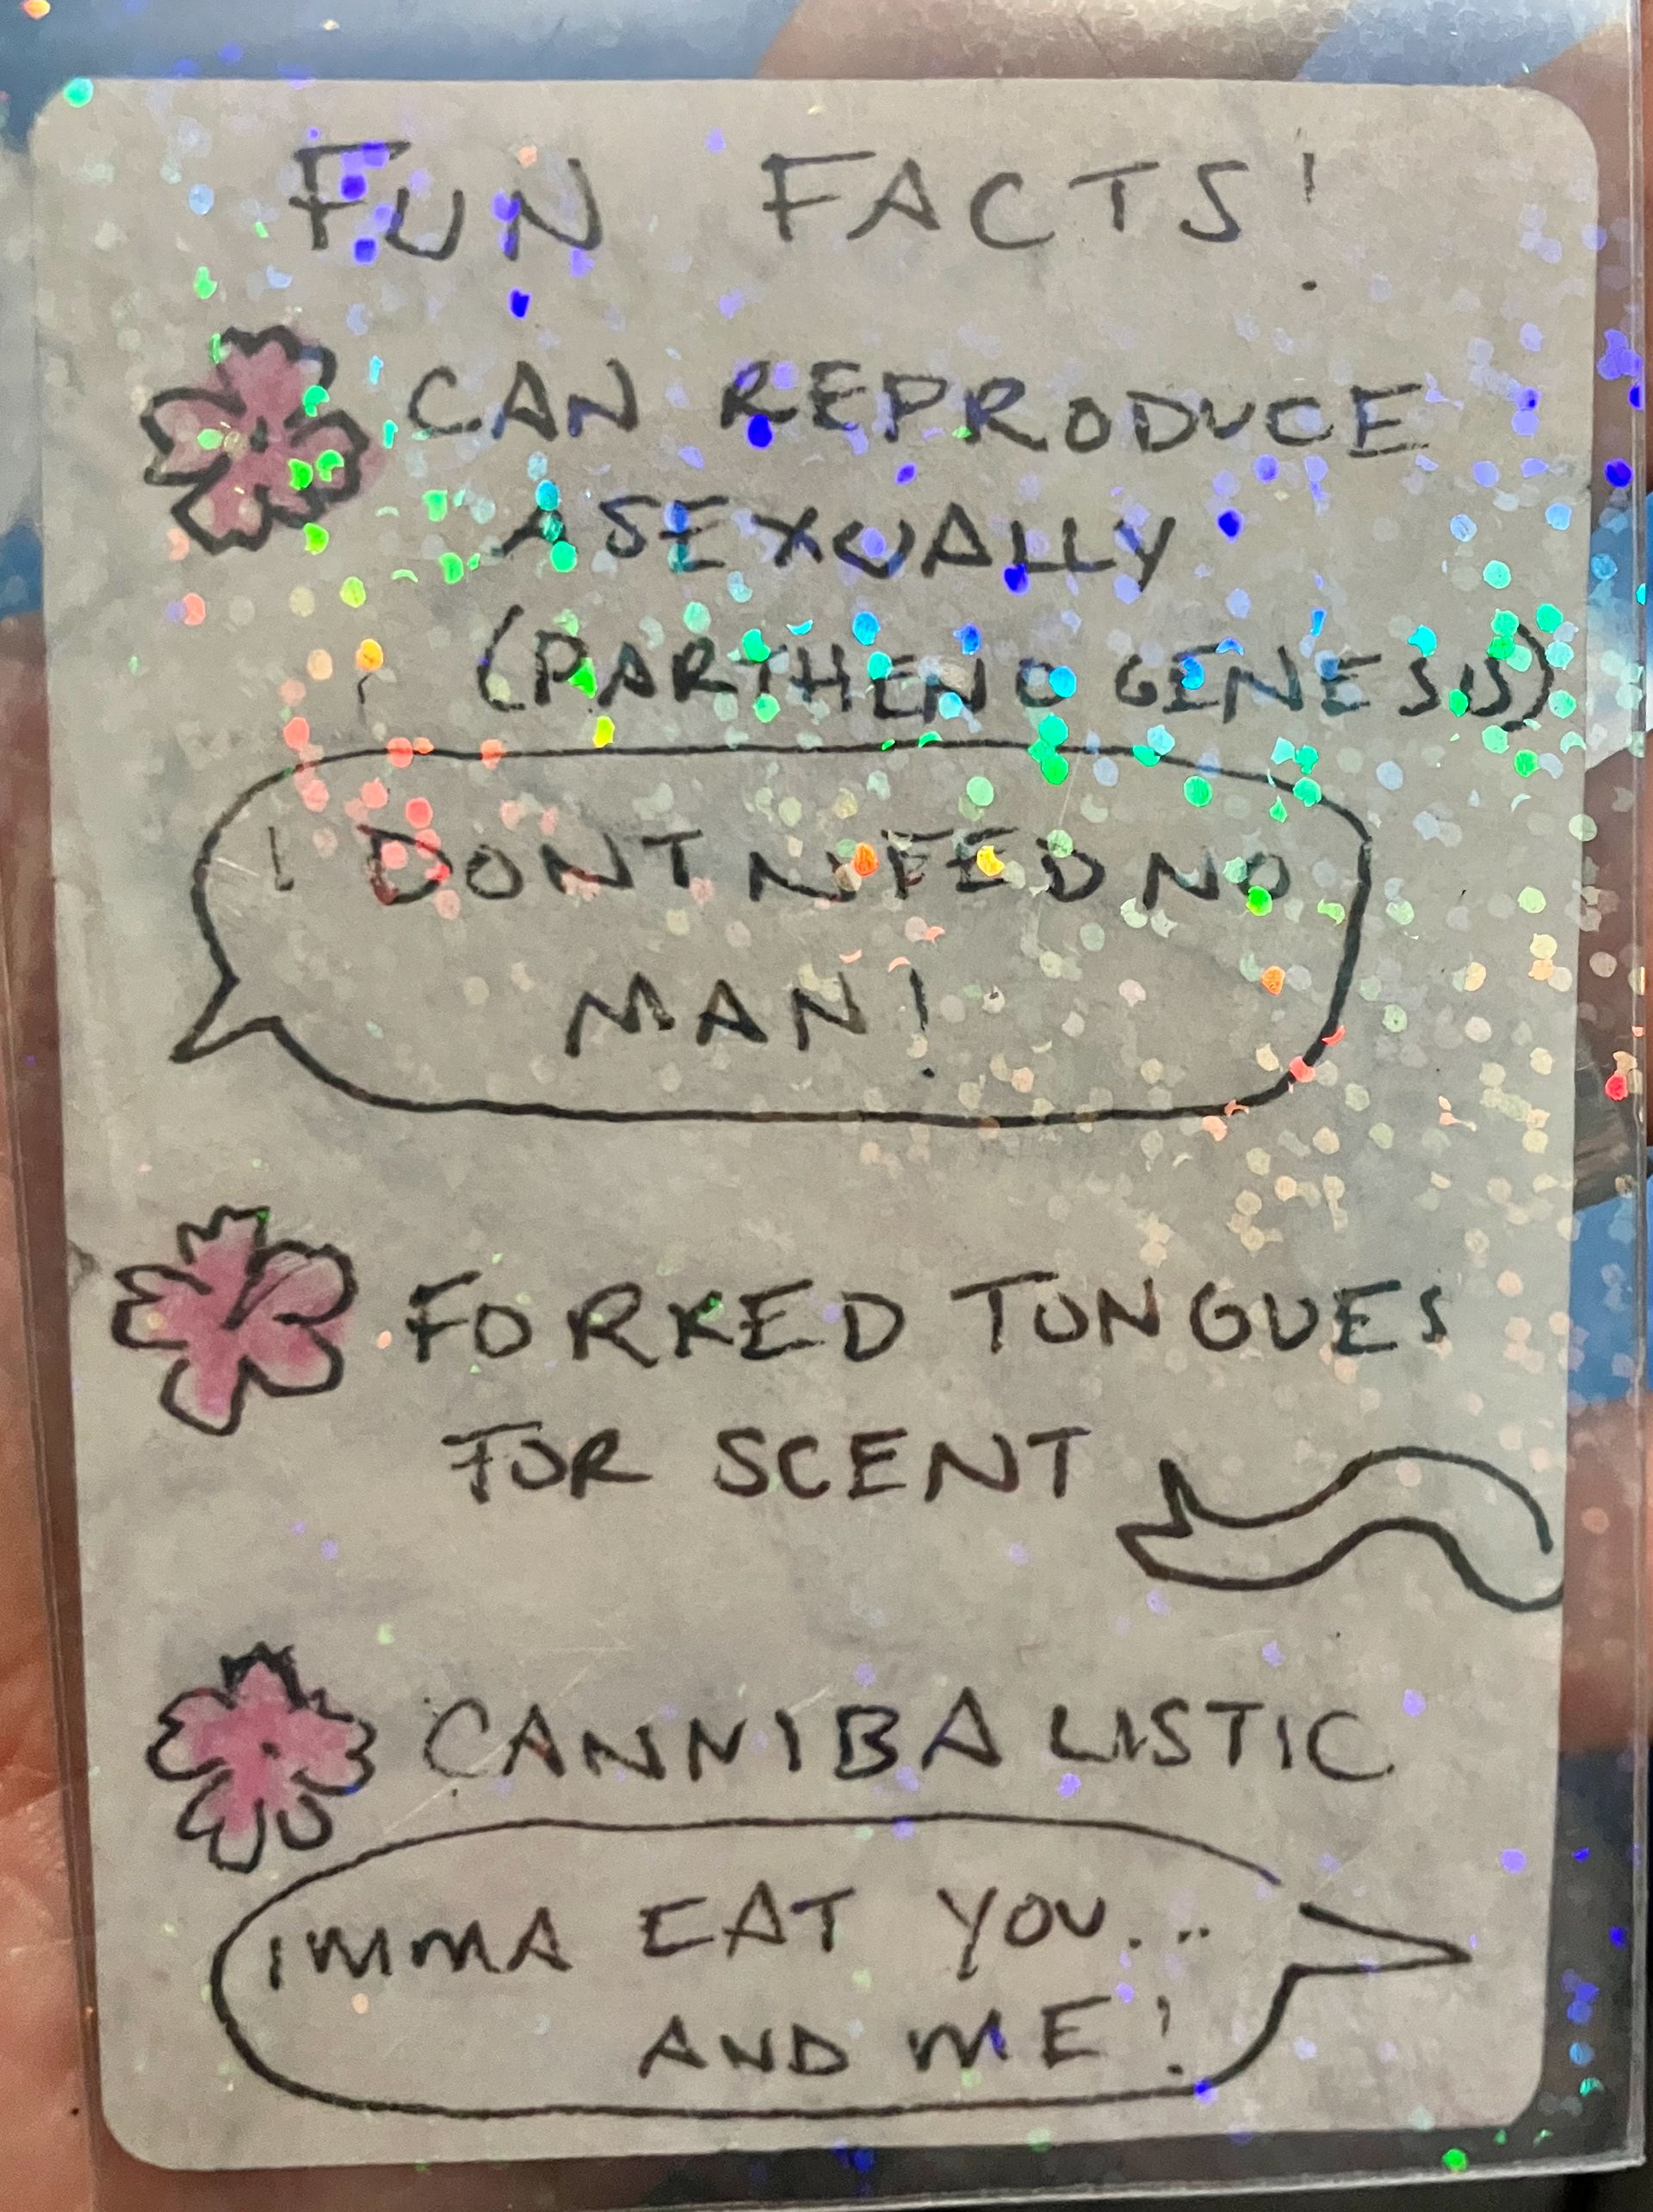 FUN FACTS!
CAN REPRODUCE
ASEXUALLY
(PARTHENOGENESIS)
I DONT NEED NO
MAN!
FORKED TONGUES
FOR SCENT
CANNIBALISTIC
IMMA EAT YOU...
AND ME!